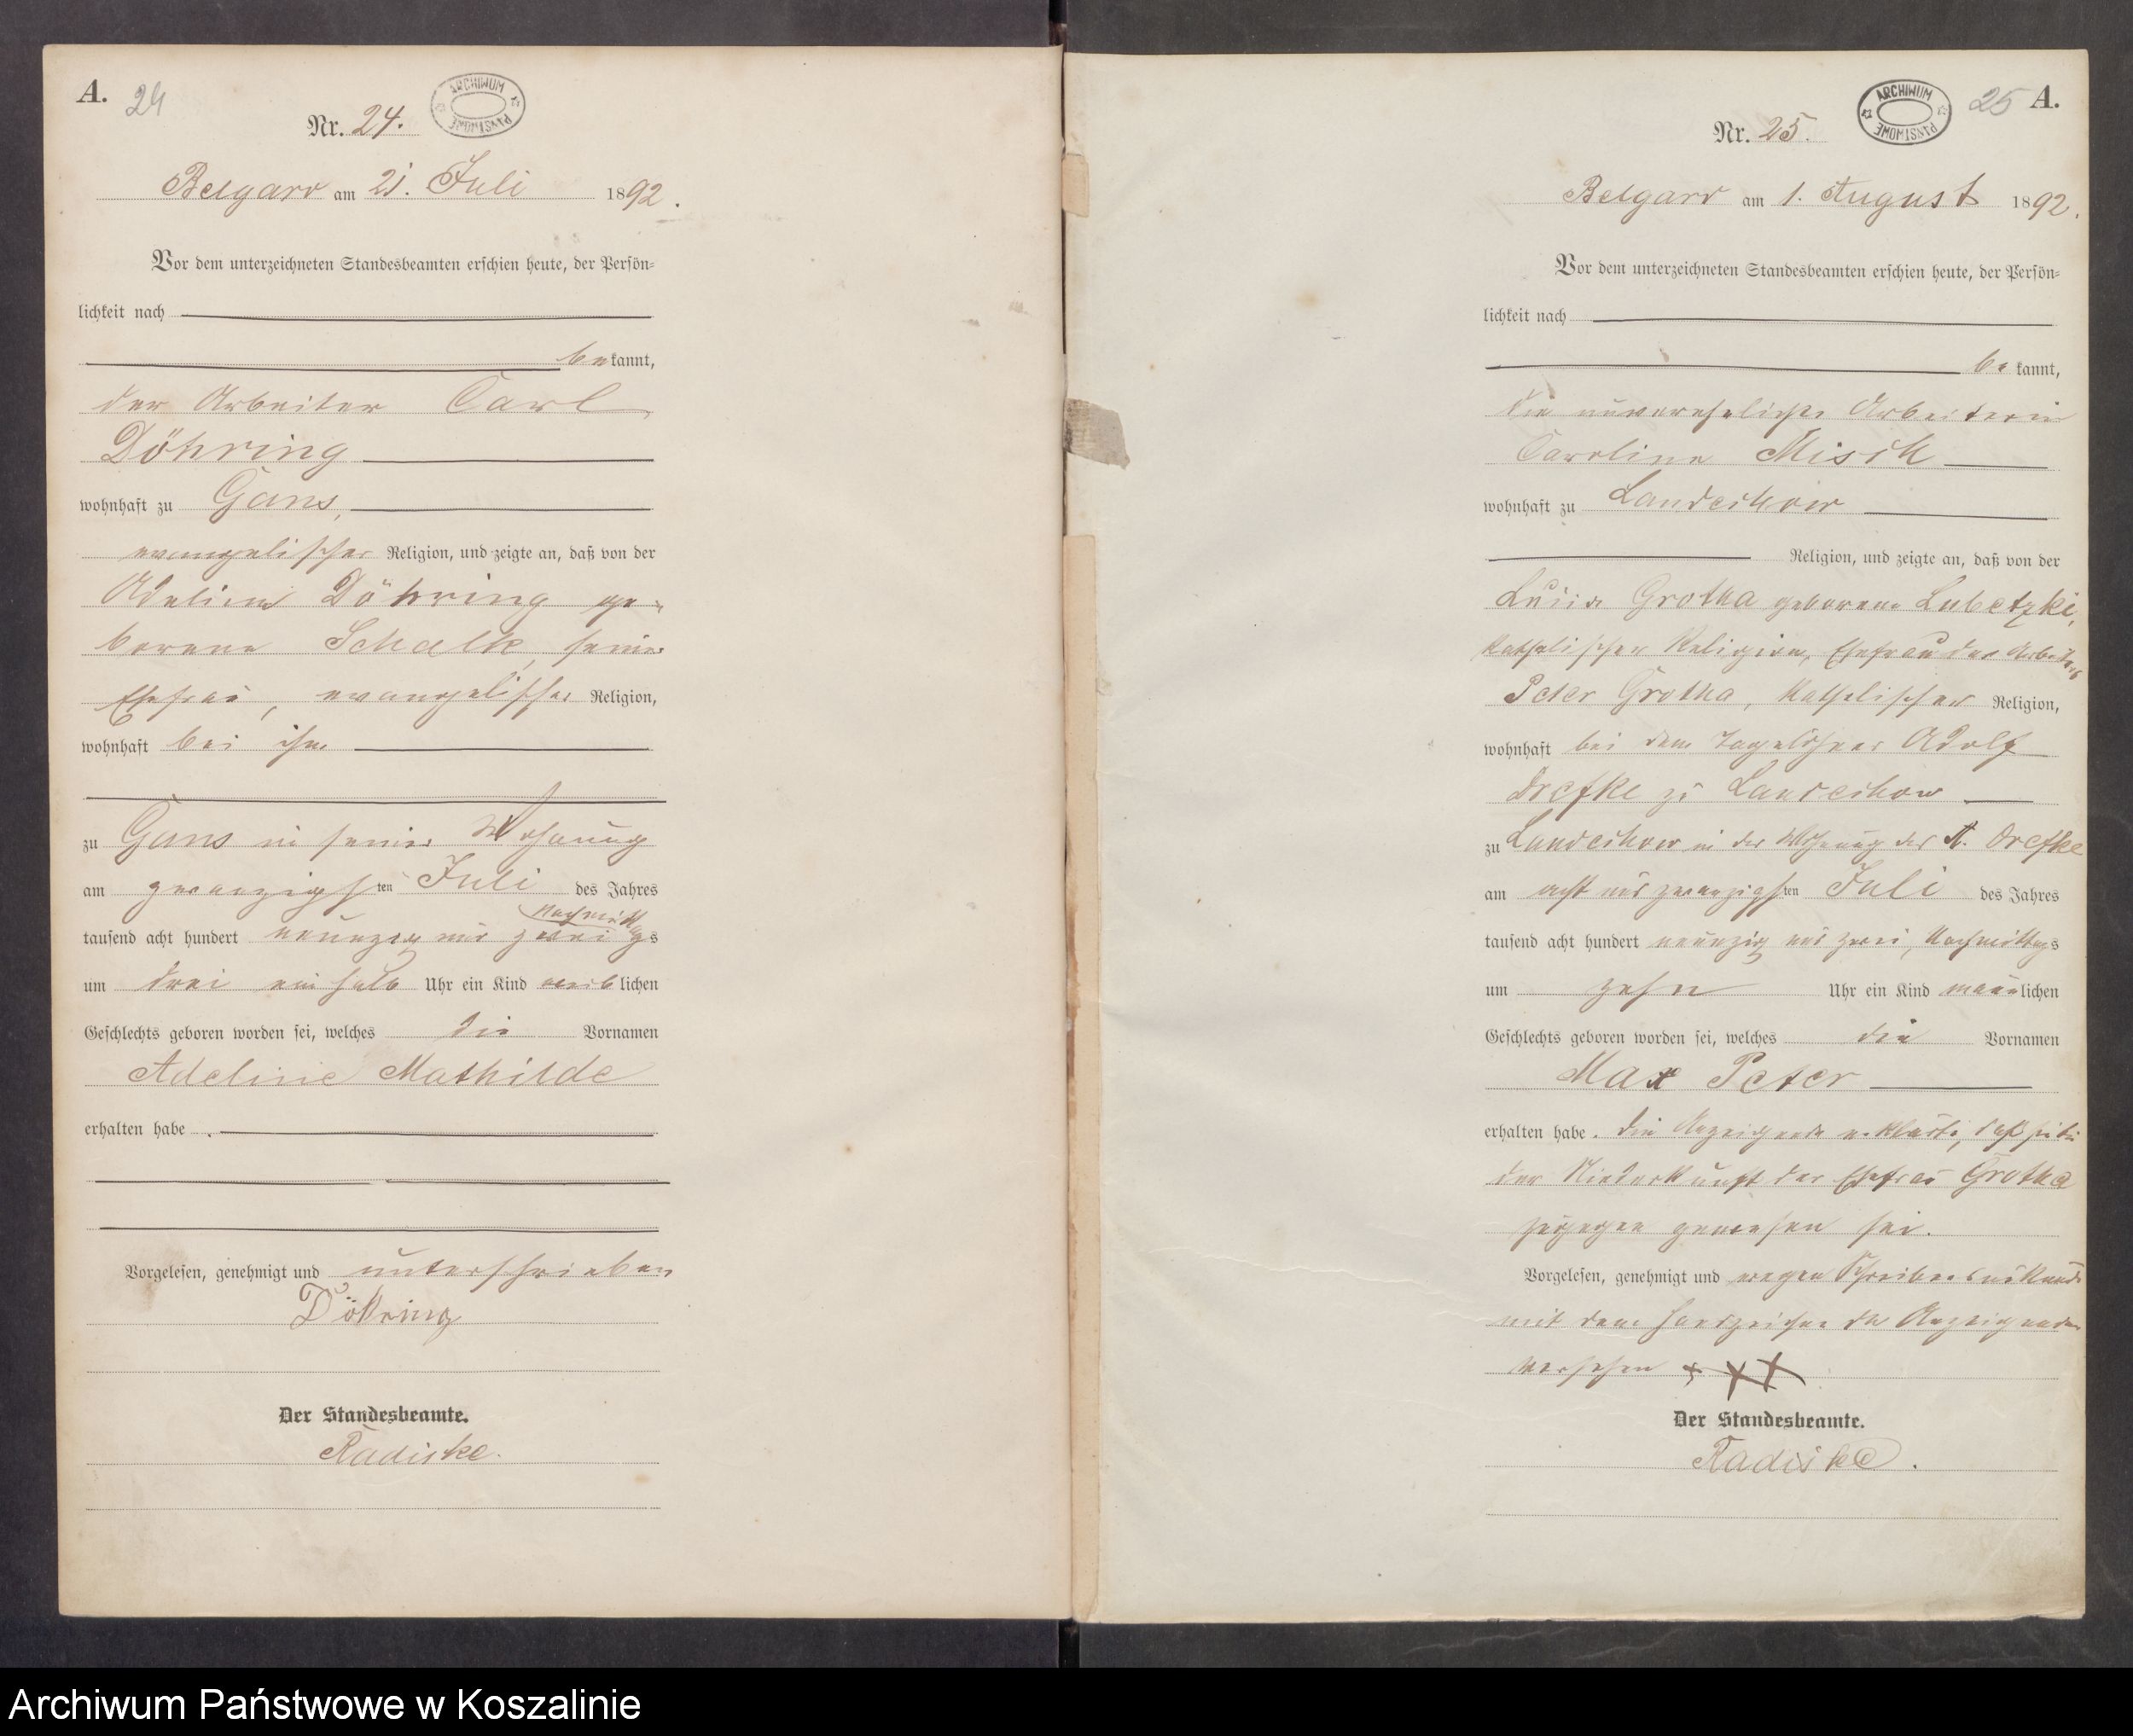 A. 24
ARCHIWUM PAŃSTWOWE
Nr. 24.
Belgard am 21. Juli 1892.
Vor dem unterzeichneten Standesbeamten erschien heute, der Persön-
lichkeit nach
bekannt,
der Arbeiter Carl
Döhring
wohnhaft zu Gans,
evangelischer Religion, und zeigte an, daß von der
Adeline Döhring ge-
borene Schalk, seiner
Ehefrau, evangelischer Religion,
wohnhaft bei ihm
zu Gans in seiner Wohnung
am zwanzigsten Juli des Jahres
tausend acht hundert neunzig und zwei Nachmittags
um drei ein halb Uhr ein Kind weiblichen
Geschlechts geboren worden sei, welches die Vornamen
Adeline Mathilde
erhalten habe.
Vorgelesen, genehmigt und unterschrieben
Döhring
Der Standesbeamte.
Radiske.
25 A.
ARCHIWUM PAŃSTWOWE
Nr. 25.
Belgard am 1. August 1892.
Vor dem unterzeichneten Standesbeamten erschien heute, der Persön-
lichkeit nach
bekannt,
die unverehelichte Arbeiterin
Caroline Misch
wohnhaft zu Landechow
Religion, und zeigte an, daß von der
Grotha geborene Lubetzki,
katholischer Religion, Ehefrau des Arbeiters
Peter Grotha, katholischer Religion,
wohnhaft bei dem Tagelöhner Adolf
Drefke zu Landechow
zu Landechow in der Wohnung des A. Drefke
am acht und zwanzigsten Juli des Jahres
tausend acht hundert neunzig und zwei, Nachmittags
um zehn Uhr ein Kind männlichen
Geschlechts geboren worden sei, welches die Vornamen
Max Peter
erhalten habe. Die Anzeigende erklärte, daß sie bei
der Niederkunft der Ehefrau Grotha
zugegen gewesen sei.
Vorgelesen, genehmigt und wegen Schreibensunkunde
mit dem Handzeichen der Anzeigenden
versehen + + +
Der Standesbeamte.
Radiske.
Archiwum Państwowe w Koszalinie